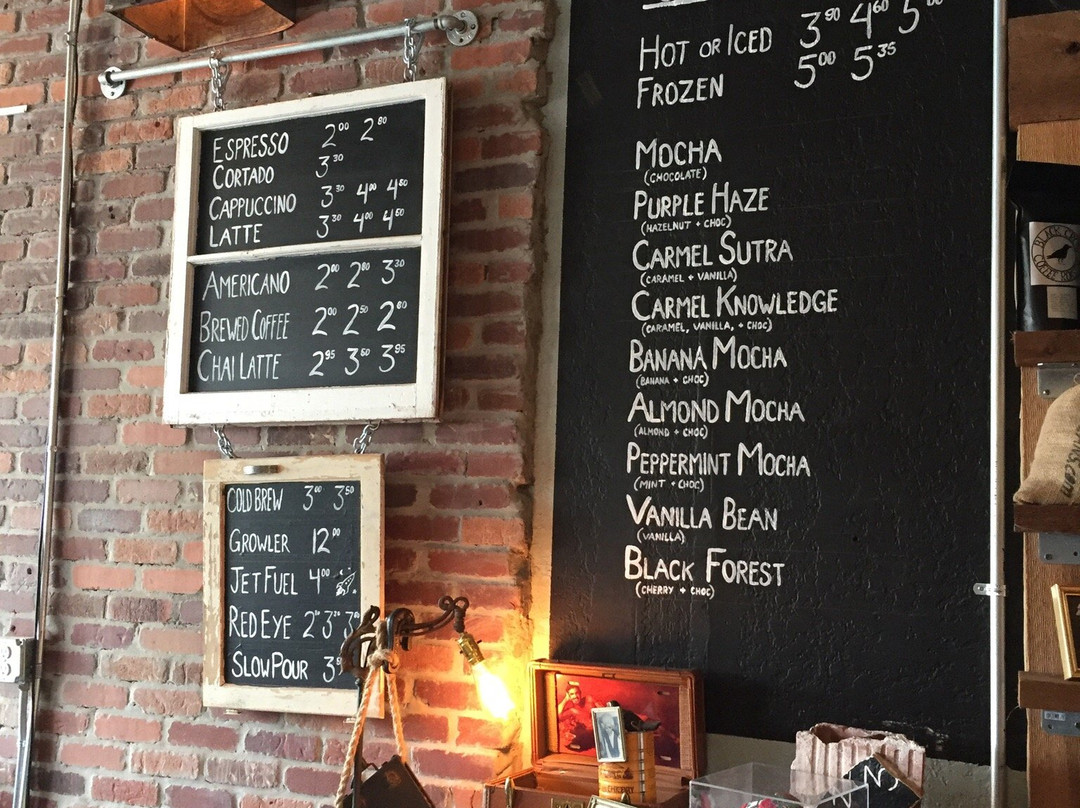 ESPRESSO 2⁰⁰ 2⁸⁰
CORTADO 3³⁰
CAPPUCCINO 3³⁰ 4⁰⁰ 4⁶⁰
LATTE 3³⁰ 4⁰⁰ 4⁶⁰
AMERICANO 2⁰⁰ 2⁸⁰ 3³⁰
BREWED COFFEE 2⁰⁰ 2⁵⁰ 2⁸⁰
CHAI LATTE 2⁹⁵ 3⁵⁰ 3⁹⁵
COLD BREW 3⁰⁰ 3⁵⁰
GROWLER 12⁰⁰
JET FUEL 4⁰⁰
RED EYE
SLOW POUR
HOT OR ICED 3⁹⁰ 4⁶⁰ 5⁰⁰
FROZEN 5⁰⁰ 5³⁵
MOCHA
(CHOCOLATE)
PURPLE HAZE
(HAZELNUT + CHOC)
CARMEL SUTRA
(CARAMEL + VANILLA)
CARMEL KNOWLEDGE
(CARAMEL, VANILLA, + CHOC)
BANANA MOCHA
(BANANA + CHOC)
ALMOND MOCHA
(ALMOND + CHOC)
PEPPERMINT MOCHA
(MINT + CHOC)
VANILLA BEAN
(VANILLA)
BLACK FOREST
(CHERRY + CHOC)